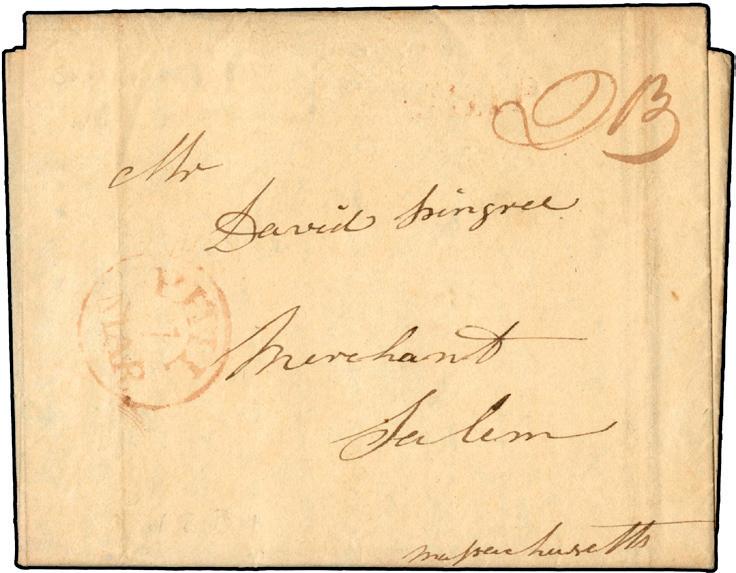 Mr
David Pingree
Merchant
Salem
Massachusetts
PHIL
7
MAR